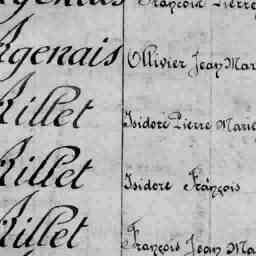 François Pierre
Agenais Ollivier Jean Mar
Rillet Isidore Pierre Marie
Rillet Isidore François
Rillet François Jean Ma